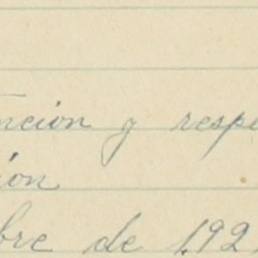 nción y respe
ión
bre de 192